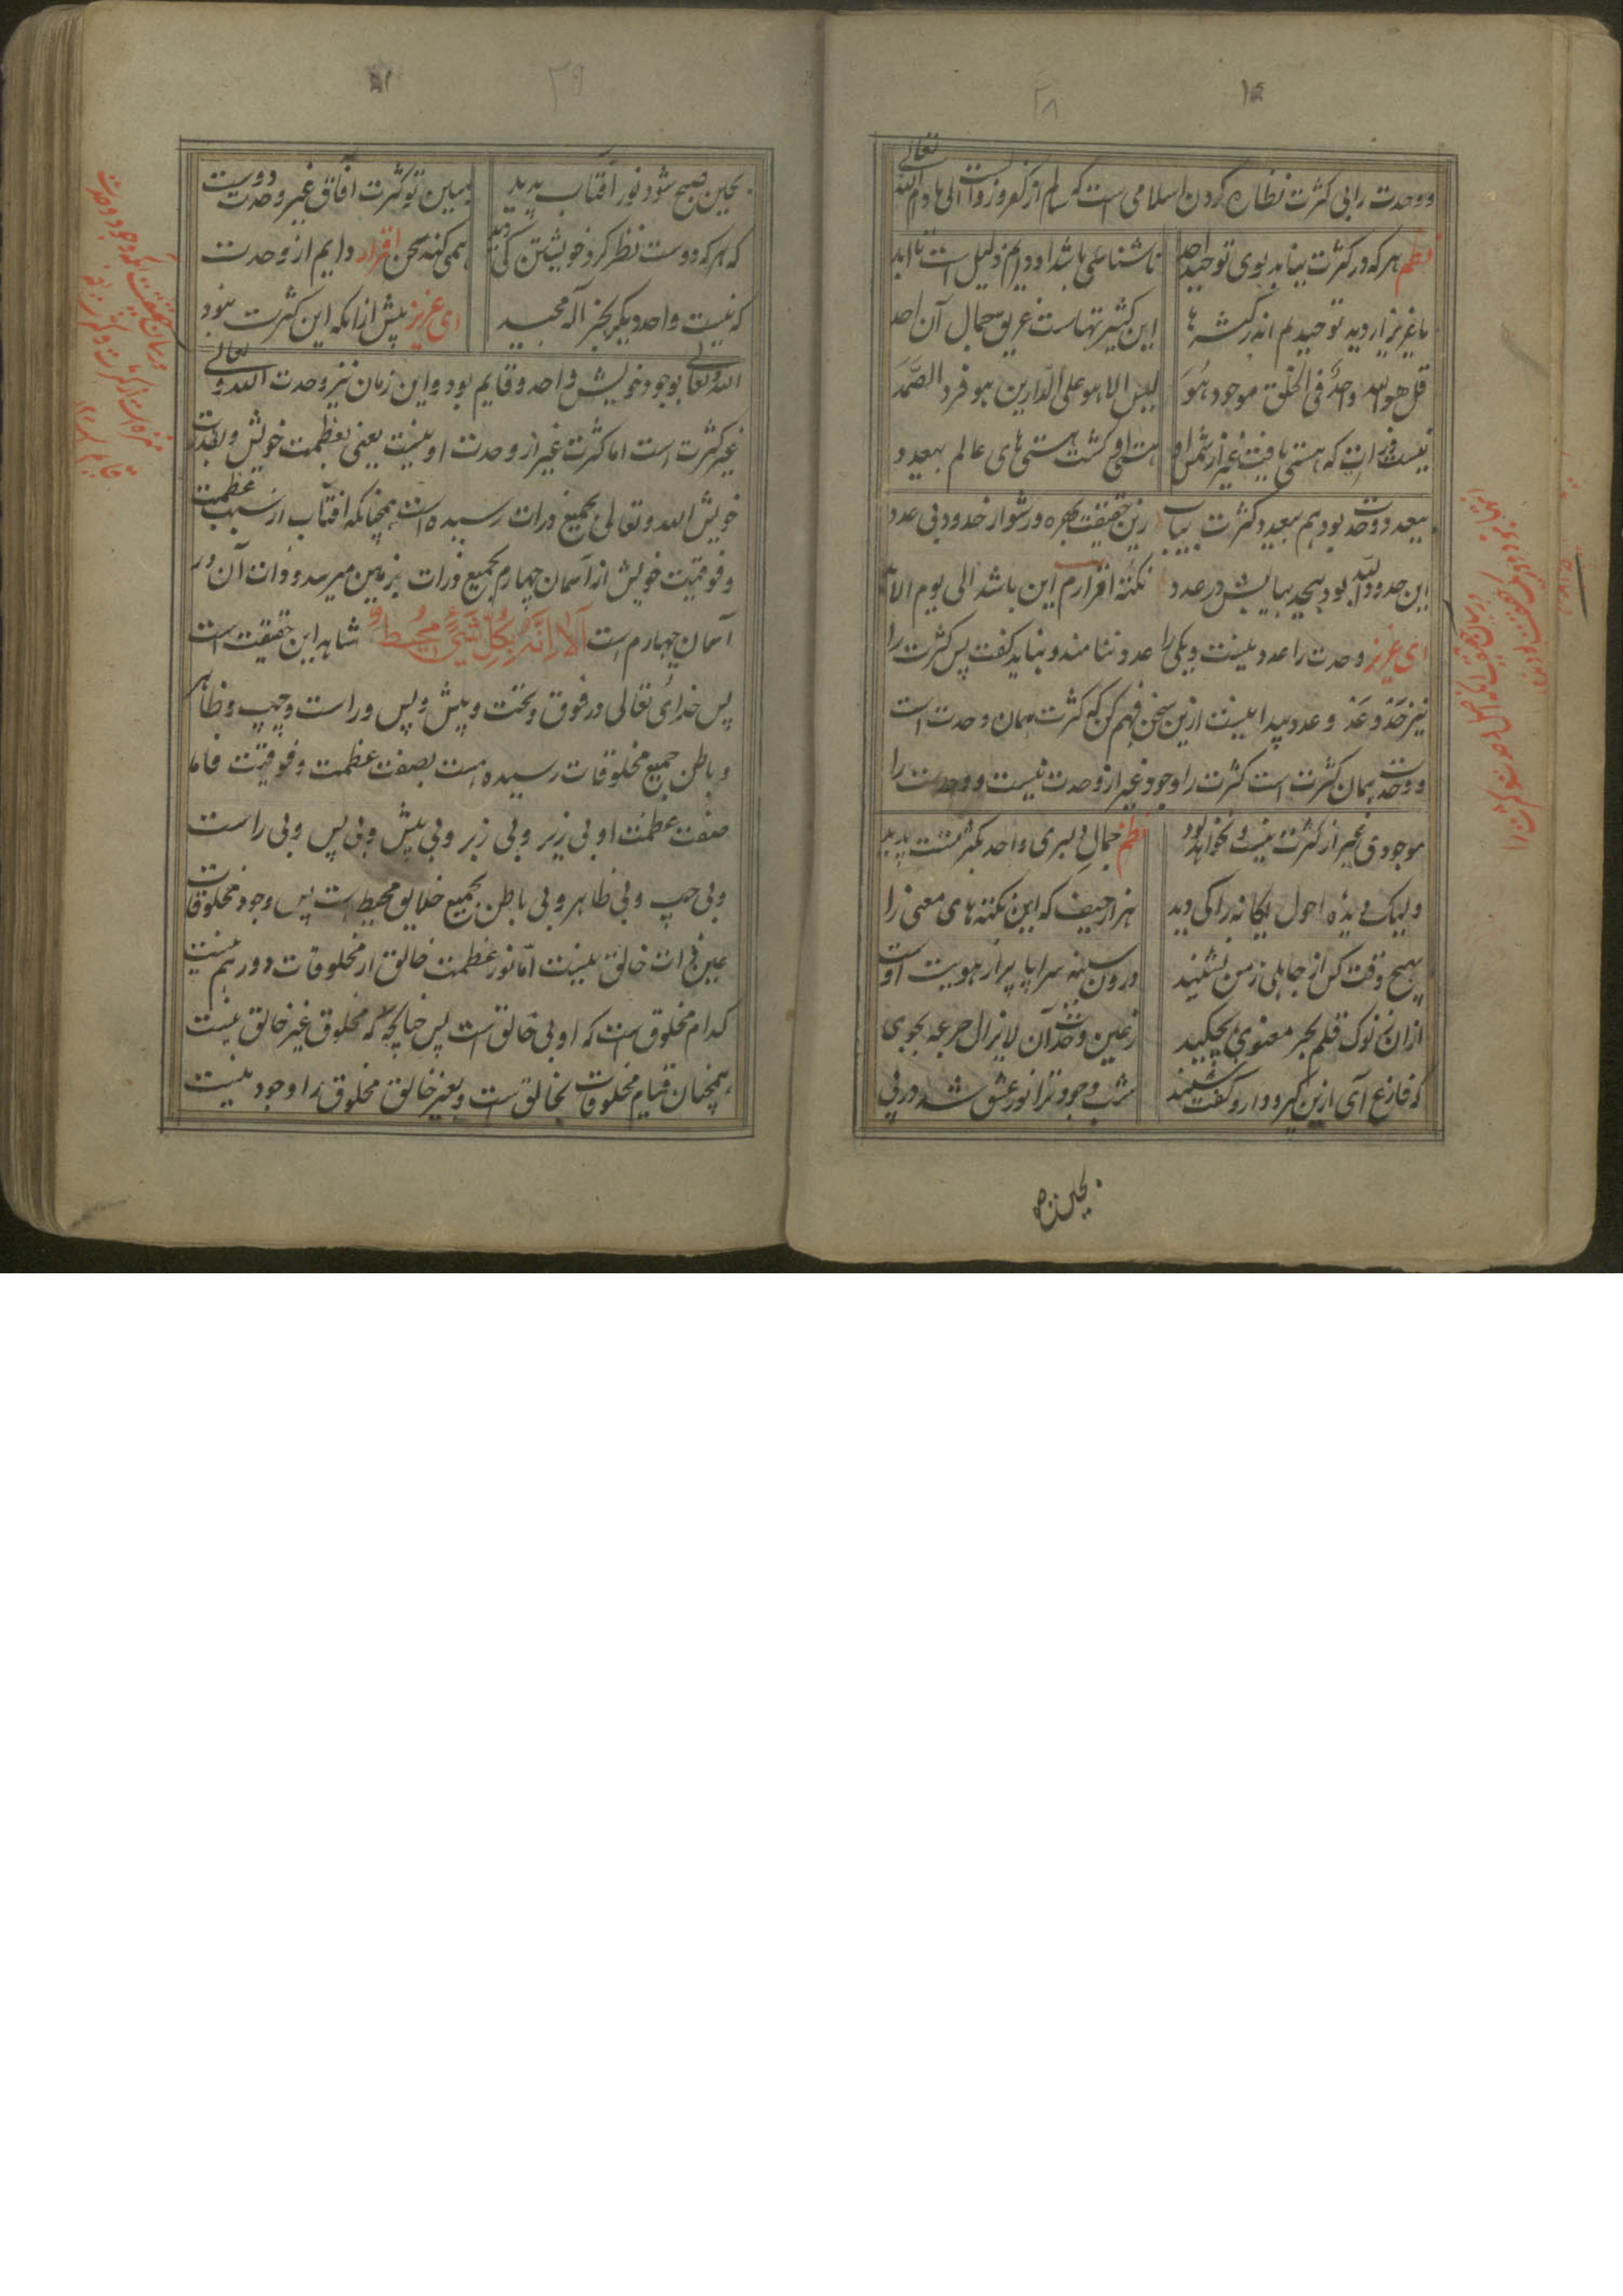 ۳۸
ووحدت را بی کثرت نظاره کردن اسلامی است که سالم از کفر وزوال است الی مادام الله تعالی
نظم هر که در کثرت نیابد بوی توحید احد
ناشناعلی باشد او دایم ذلیل است تا ابد
یا عزیز از دیده توحیدم
این کثیر تنهاست غریق جمال آن احد
قل هو الله واحد فی الخلق موجود هو
لیس الا هو علی الدارین هو فرد الصمد
نیست ذرات که هستی یافت غیر از شمس او
هست او گشت هستی های عالم بهعد و
بیعد ووحدت بود هم بیعد و کثرت بیاب
زین حقیقت بهره ور شو از حدود بی عدد
این حدود الله بود بیحد بیا بیش در عدد
نکته اقرارم این باشد الی یوم الابد
ای عزیز وحدت را عدد نیست ویکی را عدد نتامند ونباید گفت پس کثرت را
نیز حد وعد وعدد پیدا نیست ازین سخن فهم کن که کثرت همان وحدت است
ووحدت همان کثرت است کثرت را وجود غیر از وحدت نیست ووحدت را
موجودی غیر از کثرت نیست ونخواهد بود
نظم جمال دلبری واحد بکثرتست پدید
ولیک دیده احول یکانه را کی دید
هزار حیف که این نکته های معنی را
بهیچ وقت کس از جاهلی زمن نشنید
درون سینه سراپا پر از هویت اوست
از ان ز نوک قلم بحر معنوی بچکید
ز عین وحدت آن لایزال جرعه بجوی
که فارغ آی ازین گیر ودار وگفت شنید
شب وجود ترا نور عشق شد در پی
بحین ص
۳۹
بحین صبح شود نور افتاب پدید
مبین تو کثرت آفاق غیر وحدت دوست
که هر که دوست نظر کرد خویشتن کی دید
همی کند سخن اقرار دایم از وحدت
که نیست واحد دیگر بجز آله مجید
ای عزیز پیش از انکه این کثرت نبود
الله وتعالی بوجود خویش واحد وقایم بود واین زمان نیز وحدت الله وتعالی
غیر کثرت است اما کثرت غیر از وحدت او نیست یعنی بعظمت خویش وبقدرت
خویش الله وتعالی بجمیع ذرات رسیده است همچنانکه افتاب از سبب عظمت
وفوقیت خویش از آسمان چهارم بجمیع ذرات بزمین میرسد وذات آن در
آسمان چهارم است اَلَا اِنَّهُ بِكُلِّ شَيْءٍ مُحِيطٌ شاهد این حقیقت است
پس خدای تعالی در فوق وتحت وپیش وپس وراست وچپ وظاهر
وباطن جمیع مخلوقات رسیده است بصفت عظمت وفوقیت فاما
صفت عظمت او بی زیر وبی زبر وبی پیش وبی پس وبی راست
وبی چپ وبی ظاهر وبی باطن بجمیع خلایق محیط است پس وجود مخلوقات
عین ذات خالق نیست امّا نور عظمت خالق از مخلوقات دور هم نیست
کدام مخلوق است که او بی خالق است پس چنانچه که مخلوق غیر خالق نیست
همچنان قیام مخلوقات بخالق است وبغیر خالق مخلوق را وجود نیست